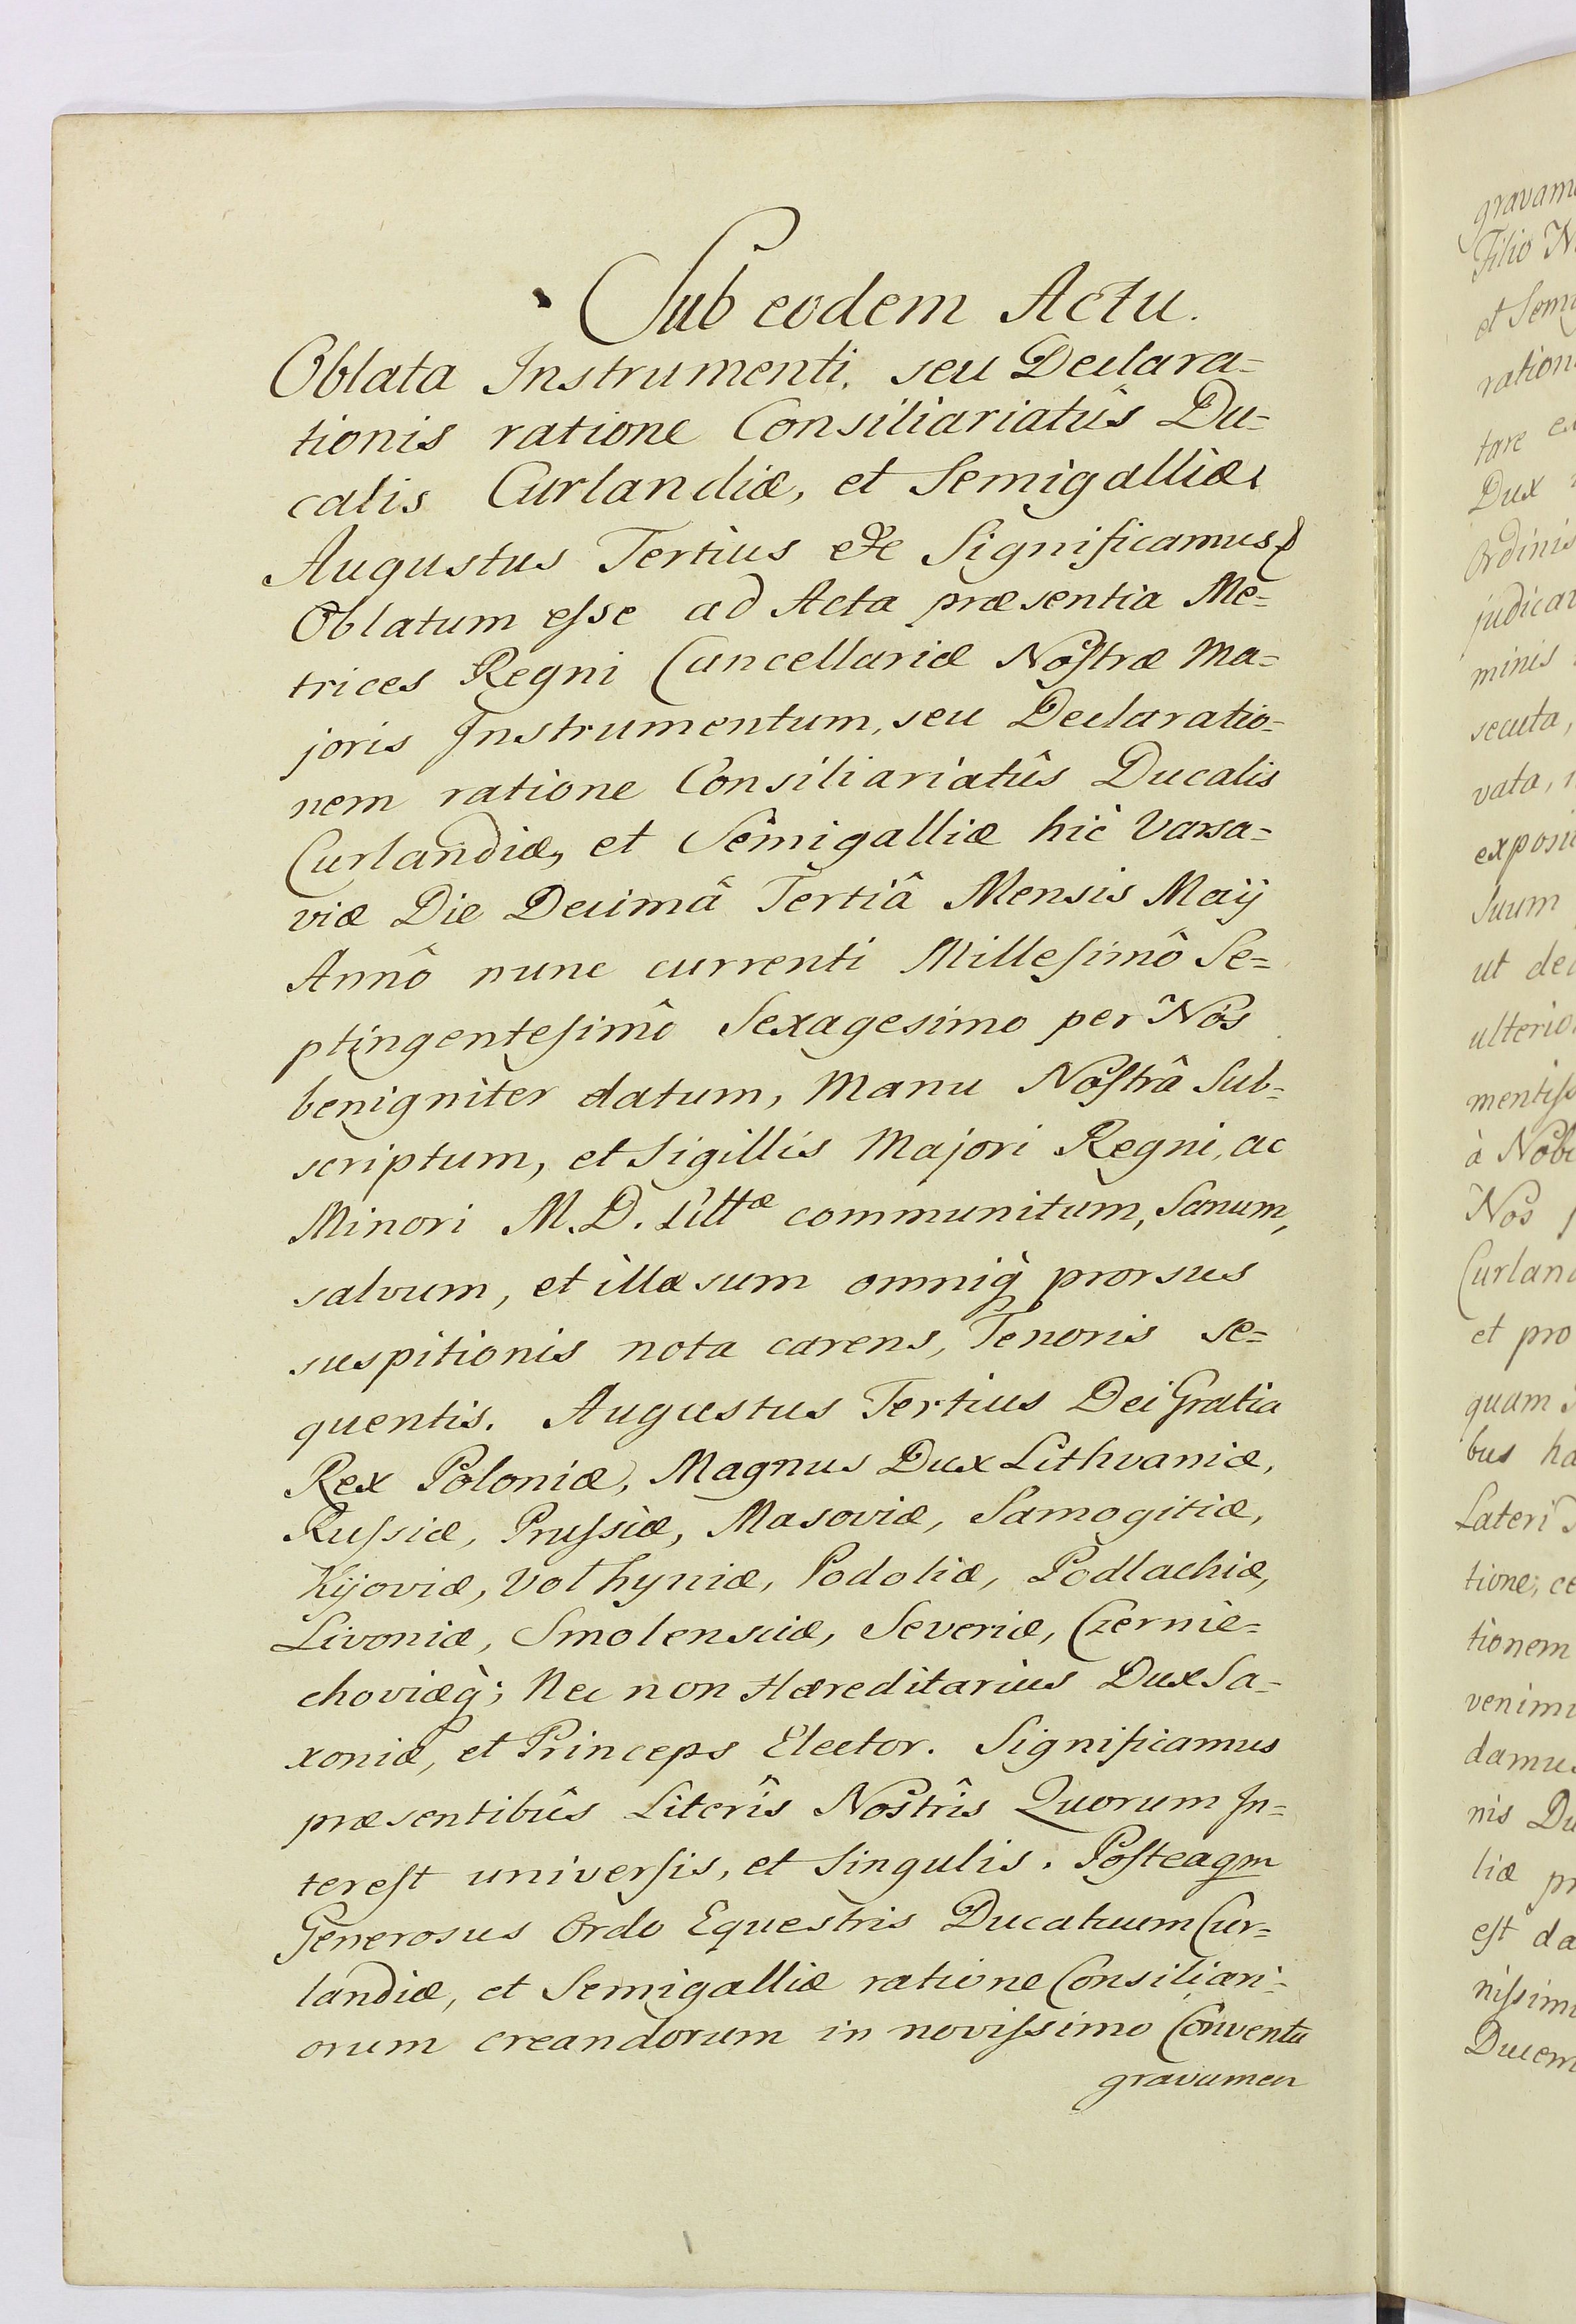 Sub eodem Actu.
Oblata Instrumenti, seu Declara=
tionis ratione Consiliariatûs Du=
calis Curlandiæ, et Semigalliæ
Augustus Tertius etc Significamus
Oblatum eſse ad Acta præsentia Me=
trices Regni Cancellariæ Noſtræ Ma=
joris Instrumentum, seu Declaratio=
nem ratione Consiliariatûs Ducalis
Curlandiæ, et Semigalliæ hìc Varsa=
viæ Die Decimâ Tertiâ Mensis Maÿ
Annô nunc currenti Milleſimô Se=
ptingenteſimô Sexagesimo per Nos
benigniter datum, Manu Noſtrâ Sub=
scriptum, et Sigillis Majori Regni, ac
Minori M. D. Littæ communitum, Sanum,
salvum, et illæsum omniq̀ prorsus
suspitionis nota carens, Tenoris se=
quentis. Augustus Tertius Dei Gratia
Rex Poloniæ, Magnus Dux Lithvaniæ,
Ruſsiæ, Pruſsiæ, Masoviæ, Samogitiæ,
Kijoviæ, Volhyniæ, Podoliæ, Podlachiæ,
Livoniæ, Smolensciæ, Severiæ, Czernie=
choviæq̀; Nec non Hæreditarius Dux Sa=
xoniæ, et Princeps Elector. Significamus
præsentibûs Literîs Nostrîs Quorum In=
tereſt univerſis, et Singulis. Poſteaqm
Generosus Ordo Equestris Ducatuum Cur=
landiæ, et Semigalliæ ratione Consiliari=
orum creandorum in noviſsimo Conventu
gravamen
Filio
tare
Dux
Ordinis
minis
secuta,
vata,
Suum
ut
à
Nos
et pro
quam
bus
Lateri
tione;
tionem
nis
liæ
eſt